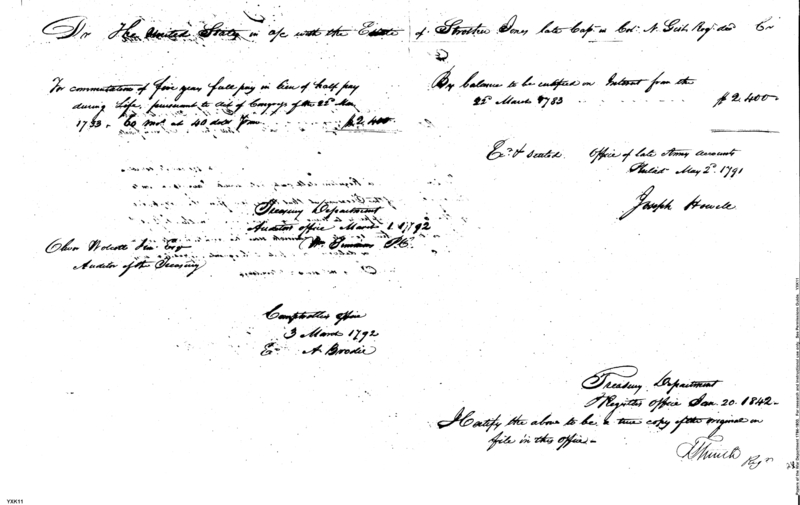 Dr The United States in a/c with the Estate of Strother Jones late Cap in Col. N. Gists Reg. decd Cr
To commutation of five years full pay in lieu of half pay
during Life, pursuant to Act of Congress of the 22d Mar
1783. 60 mos at 40 dolls $2.400
By balance to be certified on Interest from the
22d March 1783 $2.400
Ex. & stated. Office of late Army accounts
Philad. May 2d 1791
Joseph Howell
Treasury Department
Auditors office March 1. 1792
Wm Simmons P.C.
Oliver Wolcott Jun Esqr
Auditor of the Treasury
Comptrollers office
3 March 1792
Ex. A Brodie
Treasury Department
Registers Office Jan. 20. 1842
I certify the above to be a true copy of the original on
file in this office
T L Smith Regr
YXK11